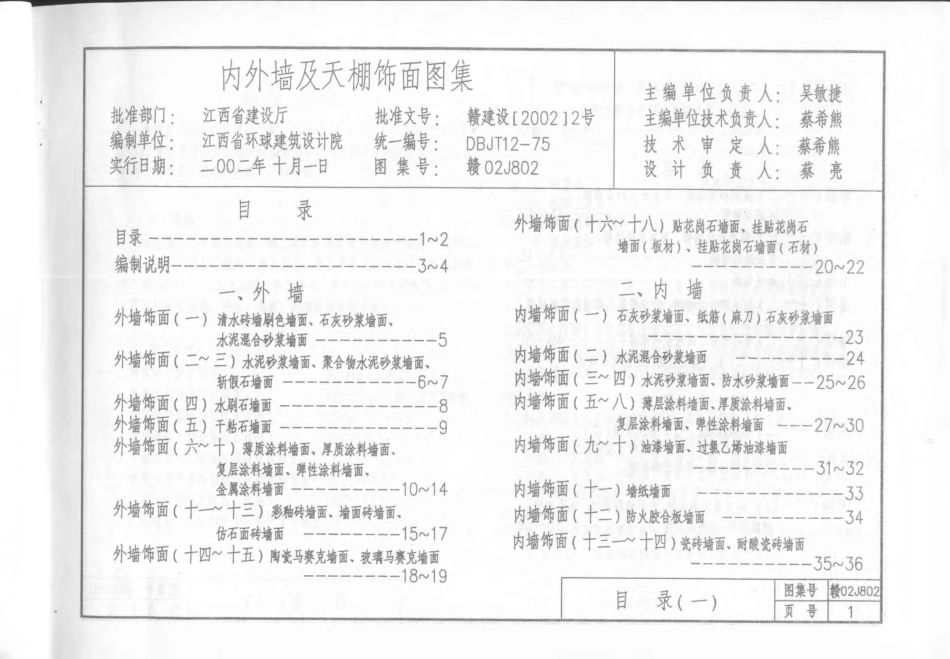 内外墙及天棚饰面图集
批准部门： 江西省建设厅 批准文号： 赣建设[2002]2号
编制单位： 江西省环球建筑设计院 统一编号： DBJT12-75
实行日期： 二00二年十月一日 图集号： 赣02J802
主编单位负责人： 吴敏捷
主编单位技术负责人： 蔡希熊
技术审定人： 蔡希熊
设计负责人： 蔡亮
目 录
目录 1~2
编制说明 3~4
一、外 墙
外墙饰面(一) 清水砖墙刷色墙面、石灰砂浆墙面、
水泥混合砂浆墙面 5
外墙饰面(二~三) 水泥砂浆墙面、聚合物水泥砂浆墙面、
斩假石墙面 6~7
外墙饰面(四) 水刷石墙面 8
外墙饰面(五) 干粘石墙面 9
外墙饰面(六~十) 薄质涂料墙面、厚质涂料墙面、
复层涂料墙面、弹性涂料墙面、
金属涂料墙面 10~14
外墙饰面(十一~十三) 彩釉砖墙面、墙面砖墙面、
仿石面砖墙面 15~17
外墙饰面(十四~十五) 陶瓷马赛克墙面、玻璃马赛克墙面
18~19
外墙饰面(十六~十八) 贴花岗石墙面、挂贴花岗石
墙面(板材)、挂贴花岗石墙面(石材)
20~22
二、内 墙
内墙饰面(一) 石灰砂浆墙面、纸筋(麻刀)石灰砂浆墙面
23
内墙饰面(二) 水泥混合砂浆墙面 24
内墙饰面(三~四) 水泥砂浆墙面、防水砂浆墙面 25~26
内墙饰面(五~八) 薄层涂料墙面、厚质涂料墙面、
复层涂料墙面、弹性涂料墙面 27~30
内墙饰面(九~十) 油漆墙面、过氯乙烯油漆墙面
31~32
内墙饰面(十一) 墙纸墙面 33
内墙饰面(十二) 防火胶合板墙面 34
内墙饰面(十三~十四) 瓷砖墙面、耐酸瓷砖墙面
35~36
目 录(一) 图集号 赣02J802
页 号 1